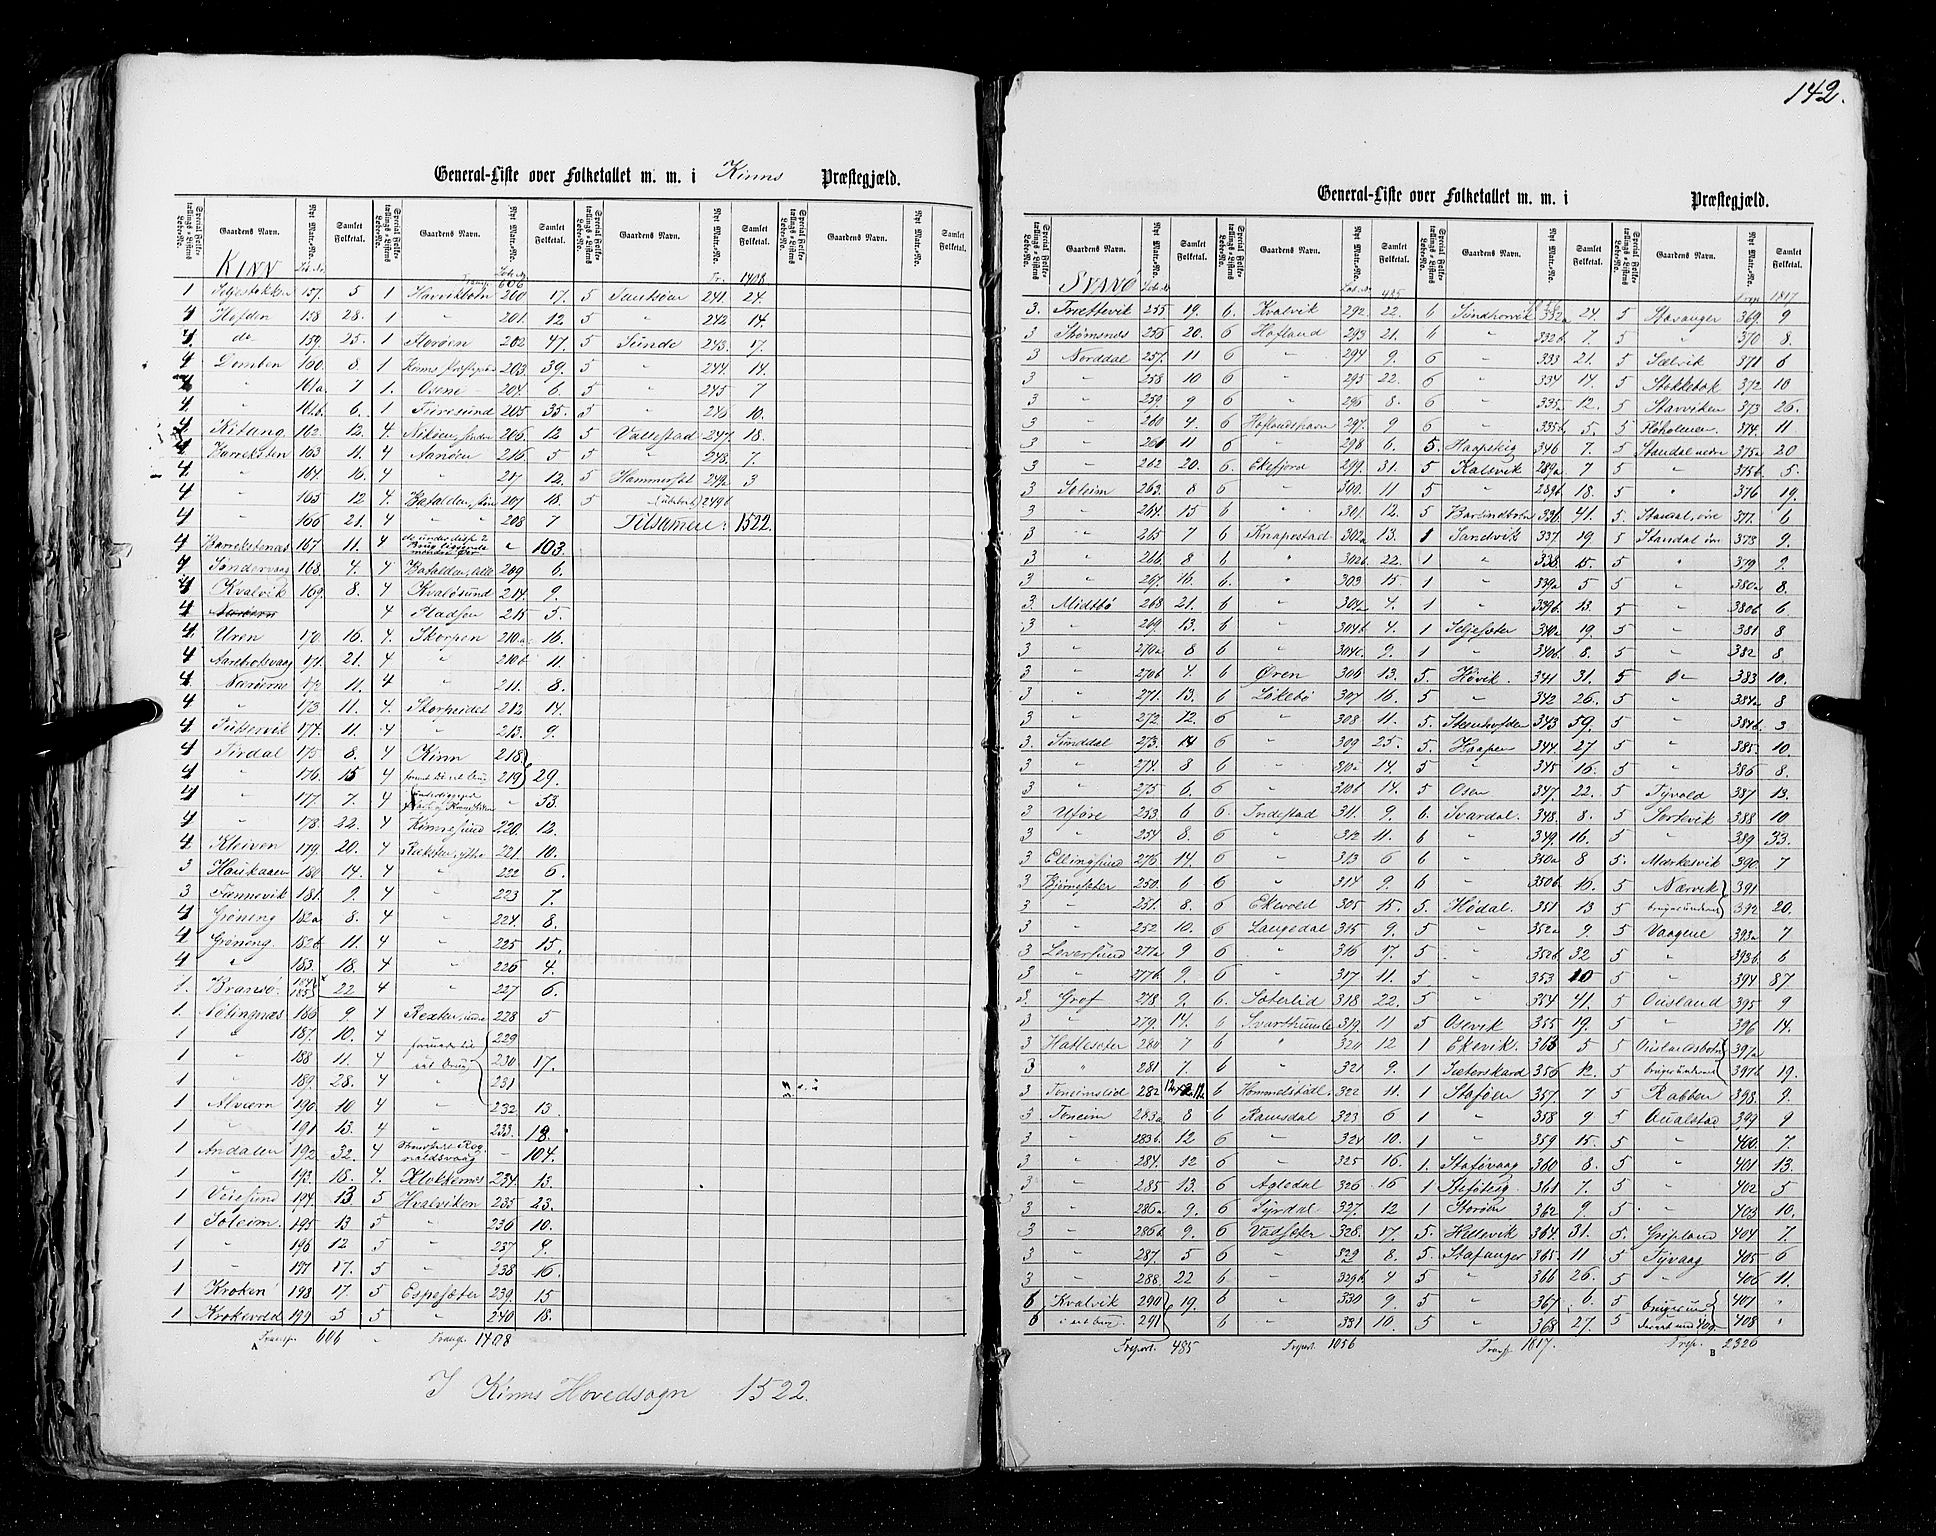 142.
General-Liste over Folketallet m. m. i Kinns Præstegjæld.
Special Folketællings-Listens Løbe-No. Gaardens Navn. Nyt Matr.-No. Samlet Folketal.
KINN
1 Seljestokken 157. 5
4 Hofden 158 28.
4 do 159. 25.
4 Domben 160. 8.
4 " 161a 7
4 " 161b. 6.
4 Kitang 162. 12.
4 Barreksten 163 11.
4 " 164. 16.
4 " 165 12
4 " 166 21.
4 Barrekstenæs 167 11.
4 Søndervaag 168. 4.
4 Kvalvik 169 8.
4
4 Uren 170. 16.
4 Aarebrotsvaag 171. 21.
4 Nærøerne 172 11.
4 " 173 11.
4 174. 11.
4 Tirdal 175 8.
4 " 176. 15
4 " 177. 7.
4 " 178. 22.
4 Kleiven 179. 20.
3 Haukaaen 180 14.
3 Tennevik 181. 9.
4 Grøneng 182a 8.
4 Grøneng 182b 11.
4 " 183. 18.
1. Brandsø 184 185 22
1 186 9
1 " 187. 10.
1 " 188 11.
1 " 189. 28.
1 Alværn 190 10
1 " 191 13.
1 Andalen 192 32.
1 " 193. 18.
1 Veiesund 194. 13
1 Soleim. 195 13
1 " 196 12
1 " 197 17.
1 Kroken 198 17.
1 Krokevold 199 5
Transp. 606
Transp. 606
1 Havrikbotn 200 17.
1 " 201. 12
1 Florøen 202 47.
1 Kinns 203 39.
1. Osene 204. 6.
1 205 35.
4. 206 12
4 Aanøen 216 5
4 " 217 12.
4. Batalden, 207 18.
4 " 208 7
4 " 103.
4 Batalden, 209 6.
4 Kvaløsund 214. 9.
4 Pladsen 215 5.
4. Skorpen 210a 16.
4 " 210b 11.
4 " 211. 8.
4. Skorpeidet 212 14.
4 " 213. 9.
4 Kinn 218
4 219 29.
4 " 53.
4 Kinnesund 220. 12.
4 Ræksten, ytre 221. 10.
4 " 222 6.
4 " 223 7.
4 " 224. 8.
4 " 225 15.
4 " 226 4.
4 " 227 6.
4 Rexten, indre 228 5
4 229
4 230 17.
4 " 231
4 " 232 13.
4 " 233. 18.
4 naldsvaag - 104.
4. Klokkernæs 234 13.
5 Hvalviken 235 23.
5 " 236 10.
5 " 237 9.
5 " 238 16.
5 Espesæter 239 15
5 " 240 18.
Transp. 1408
Tr. 1408
5 241 24.
5 " 242 14.
5 Sunde 243. 17.
5 " 244. 14.
5 " 245 7
5 " 246 10.
5 Vallestad 247. 18.
5 " 248. 7.
5 Hammerset 249a 3
5 249b
Tilsamen: 1522.
I Kinns Hovedsogn 1522.
General-Liste over Folketallet m. m. i Præstegjæld.
Special Folketællings-Listens Løbe-No. Gaardens Navn. Nyt Matr.-No. Samlet Folketal.
SVANØ
3. Trættevik 255 19.
3 Strømsnes 256 20.
3 Norddal 257. 11
3 " 258 10
3 " 259. 9
3 " 260 4.
3 " 261 11
3 " 262 20.
3 Soleim 263. 8
3 " 264. 15
3 " 265 7
3 " 266. 8
3 " 267. 16.
3. Midtbø 268 21.
3 " 269. 13.
3 " 270a 8
3 " 270b 4.
3 " 271. 13.
3 " 272. 12
3. Sunddal 273. 14
3 " 274. 8
3 " 275 6.
3 Uføre 253 6
3 " 254 8.
3 Ellingsund 276 14.
3 Bjørnesæter 250. 6
3 " 251 8.
3 " 252 10.
3 Leversund 277a 9
3 " 277b. 9.
3. Grof 278 9.
3 " 279. 14.
3 Hatlesæter 280 7
3 " 281 7.
3 282
3 283a 8
3 " 283b. 12
3 " 284. 12
3 " 285 13.
3 " 286a 9.
3 " 286b 9.
3 " 287. 5
3 " 288. 22
6 Kvalvik 290 19.
6 291
Transport. 485
485
6. Kvalvik 292 22.
6 Hofland 293 21.
6 " 294 9.
6 " 295 22.
6 " 296 8.
6 297. 9
6 " 298 6.
6. Ekefjord 299. 31.
6 " 300. 11
6 " 301 12.
6 Knapestad 302a 13.
6 " 302b. 22.
6. " 303 15.
6 " 304a 4.
6 " 304b 4.
6 " 304c. 9.
6 Øren 306 13.
6 Løkebø 307 16.
6 " 308 11.
6 " 309 25.
6 " 310a 14.
6 " 310b 14.
6 Indestad 311. 9.
6 " 312 11.
6 " 313 6
6 " 314 9.
6 Ekevold 305 15.
6 Langedal 315 9.
6 " 316 17.
6 " 317 11.
6. Sæterlid 318 22.
6 Svarthumle 319 11
6 " 320 12
6 " 321 9.
6 322 11.
6 Ramsdal 323 6
6 " 324 10.
6 " 325 16.
6 326 16
6 327. 12
6 Vadsæter 328. 17.
6 " 329 8.
6 " 329b. 4
6 " 330 9.
6 " 331 10.
Transport 1056
1056
6 332a 24.
6 " 332b. 7.
6 " 333 21.
6 " 334 14.
6 " 335a 12.
6 " 335b 5.
5. 346 7.
5 Kalsvik 289a 7
5 " 289b. 18.
5 336. 41.
1 Sandvik 337. 19
1 " 338. 15.
1 " 339a 5
1 " 339b. 13.
1 Seljesæter 340a 19.
1 " 340b. 8.
5. Høvik 341 31.
5 " 342 26.
5. 343 59.
5. 344. 27
5 " 345 16.
5 Osen 347. 22.
6. Svardal. 348. 8.
6 " 349. 16.
6 " 350a 8
6 " 350b. 16.
5. Hødal. 351 13
5 " 352a 9.
5 " 352b 32
5 " 353 10
5 " 354 41.
5 Osevik 355 19.
1 Ekevik. 363 5
1 Sæterskard 356 12.
1 Staføen 357. 7
1 " 358 9
1 " 359 15.
1. Stafövaag 360 8.
1 361 7.
1 Storøen 362 9.
5. Hellevik 364. 31.
5. Stafanger 365. 11
5 " 366 26.
5 " 367. 6.
5 " 368 27.
Transp. 1817.
Transp. 1817
5 Stavanger 369. 9
5 " 370 8.
5 Sælvik 371 6
5 Stokkebøk 372 10
5 Stavviken 373 26.
5 Floholmen. 374. 11
5 Standal nedre 375a 20
5 " 375b. 5.
5 " 376 19.
5 377. 6
5 Standal 378 9.
5 " 379 9.
5 " 380a 8.
5 " 380b 6.
5 " 381 8
5 " 382 8
5 383 10.
5 " 384a 8
5 " 384b. 3
5 " 385. 10
5 " 386 8.
5 387 13.
5 Sørtevik 388 10
5 " 389 33.
5. Markesvik 390 7
5 Nærvik 391
5 392 20.
5 Vaagene 393a 7
5 " 393b. 6
5 " 394 87.
5 Ousland 395 9
5 " 396 14.
5 Ouslandsbotn 397a
5 397b 19.
5 Rabben 398. 9.
5 399 9
5 " 400 7.
5 " 401 13.
5 " 402 5
5 " 403 10.
5. Gripland 404 7.
5 405 6
5 " 406 11.
5 407 "
5 408 "
Trsp. 2326